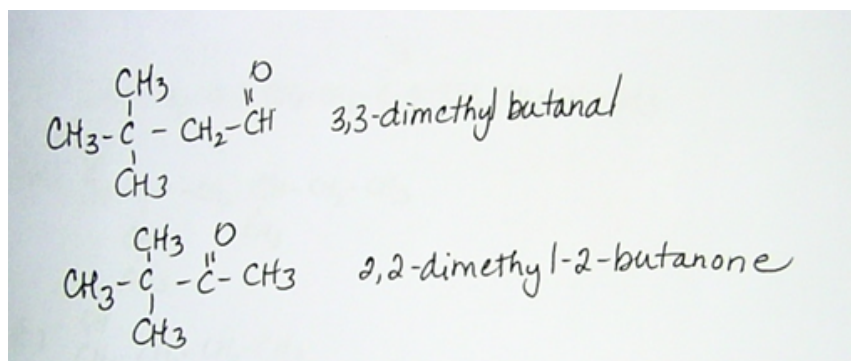 CH3 O
CH3-C-CH2-CH 3,3-dimethyl butanal
CH3
CH3 O
CH3-C-C-CH3 2,2-dimethyl-2-butanone
CH3